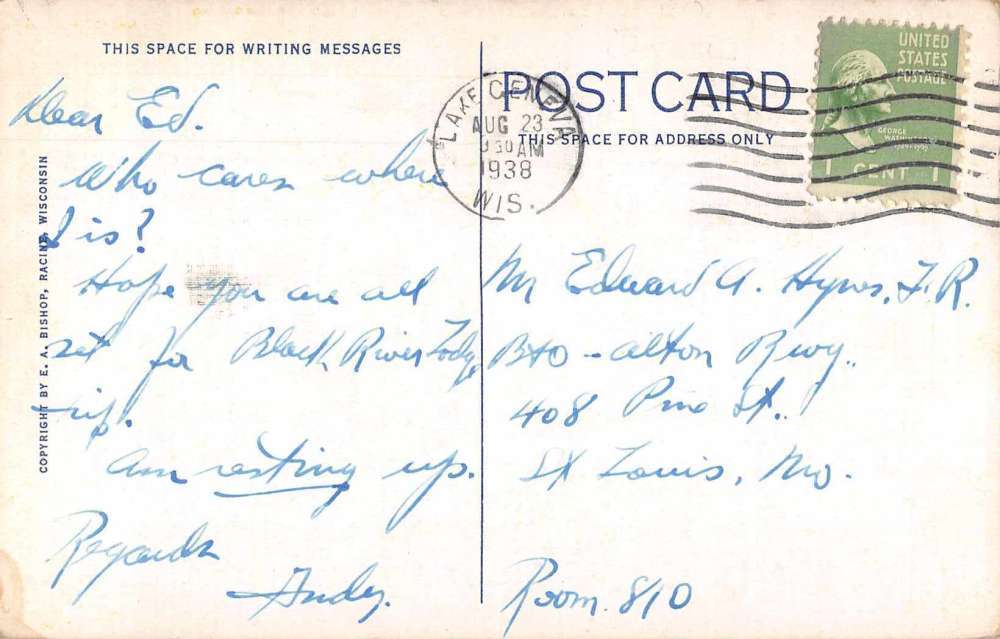 THIS SPACE FOR WRITING MESSAGES
Dear Ed.
Who cares where
I is?
Hope you are all
set for Black River Lodge
trip.
Am resting up.
Regards
Andy.
COPYRIGHT BY E. A. BISHOP, RACINE, WISCONSIN
POST CARD
THIS SPACE FOR ADDRESS ONLY
LAKE GENEVA
AUG 23
9 30 AM
1938
WIS.
UNITED
STATES
POSTAGE
GEORGE
1 CENT 1
Mr Edward A. Hynes, F.R.
B&O - Alton Rwy.
408 Pine St.
St Louis, Mo.
Room 810